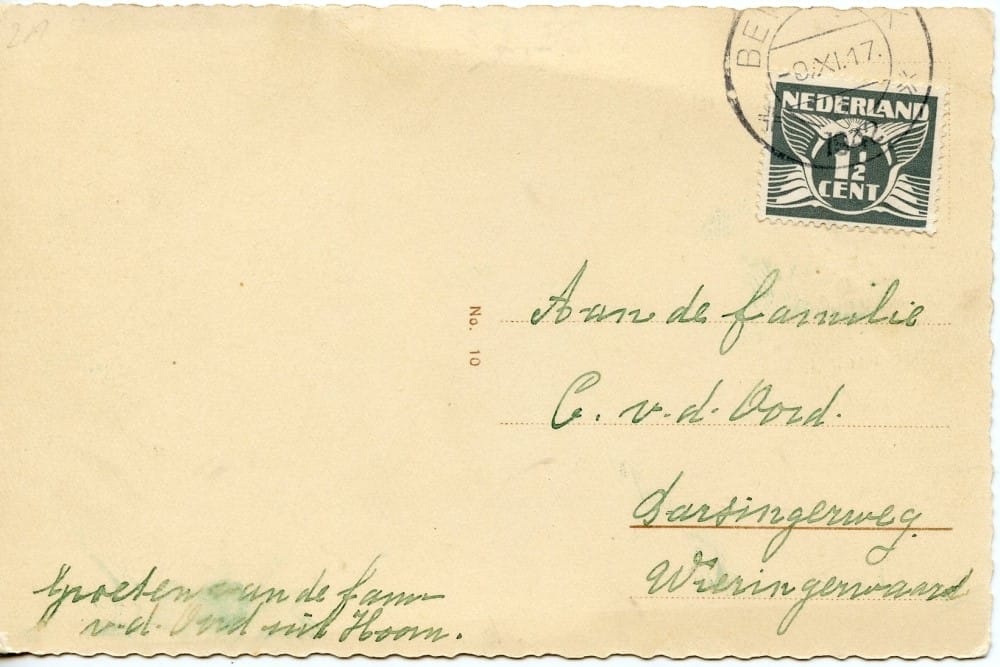 2A
9.XI.17.
NEDERLAND
1½
CENT
No. 10
Aan de familie
C. v.d. Oord.
Barsingerweg
Wieringerwaard
Groeten aan de fam
v.d. Oord uit Hoorn.